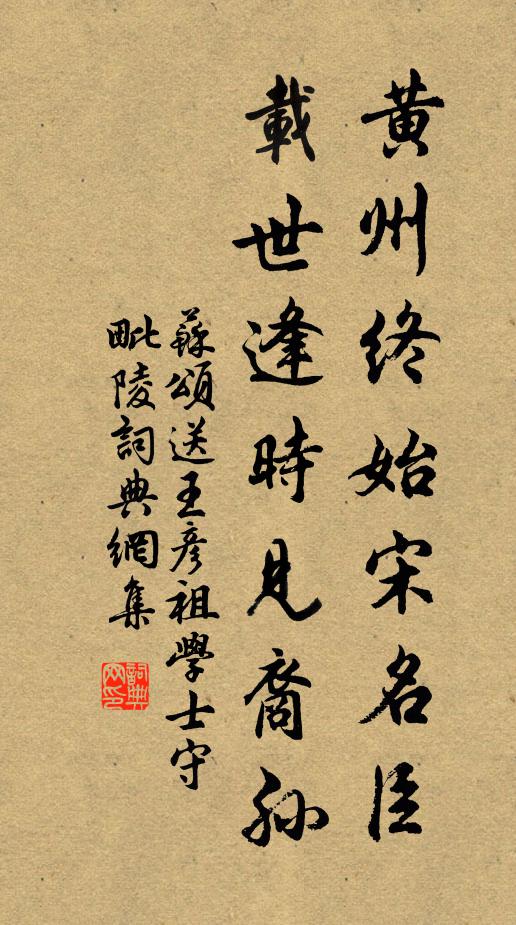 黃州終始宋名臣
載世逢時見裔孫
蘇頌送王彥祖學士守
毗陵詞典網集
詞典
网印